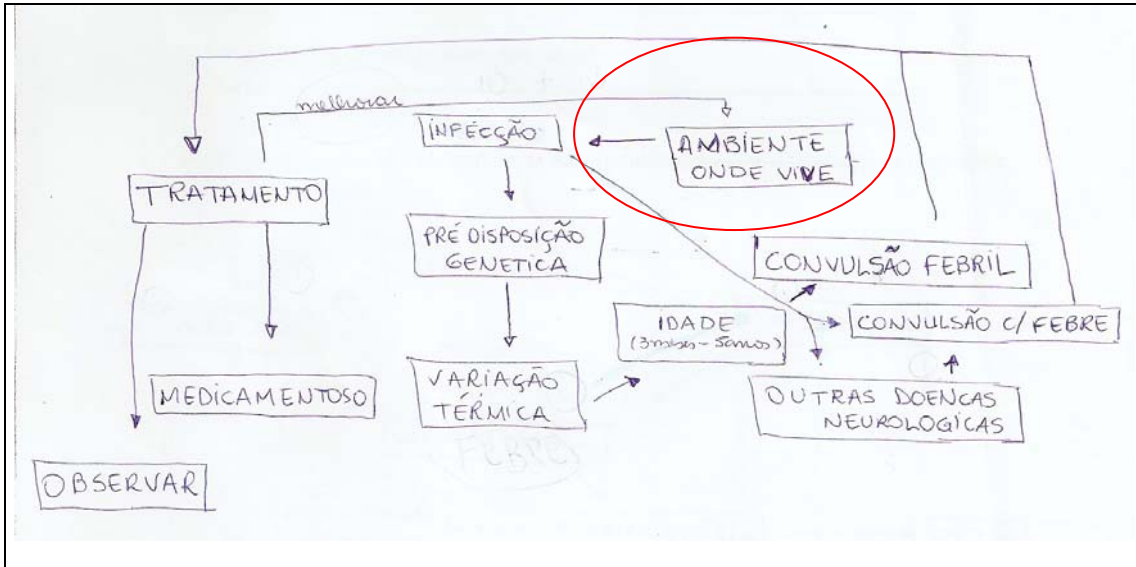 melhorar
INFECÇÃO
AMBIENTE
ONDE VIVE
TRATAMENTO
PRÉ DISPOSIÇÃO
GENETICA
CONVULSÃO FEBRIL
IDADE
(3meses - 5anos)
CONVULSÃO C/ FEBRE
VARIAÇÃO
TÉRMICA
MEDICAMENTOSO
OUTRAS DOENCAS
NEUROLOGICAS
FEBRE
OBSERVAR